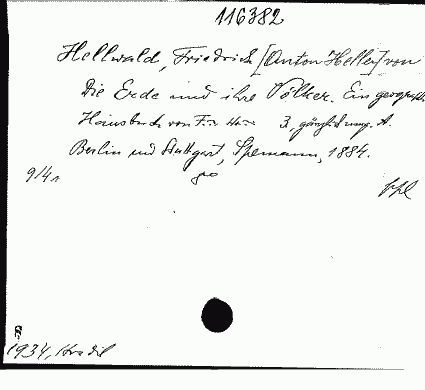 116382
Hellwald, Friedrich [Anton Heller] von
Die Erde und ihre Völker. Ein geogr.
Hausbuch von F. H. 3., gänzl. umg. A.
Berlin und Stuttgart, Spemann, 1884.
914
8°
1934,